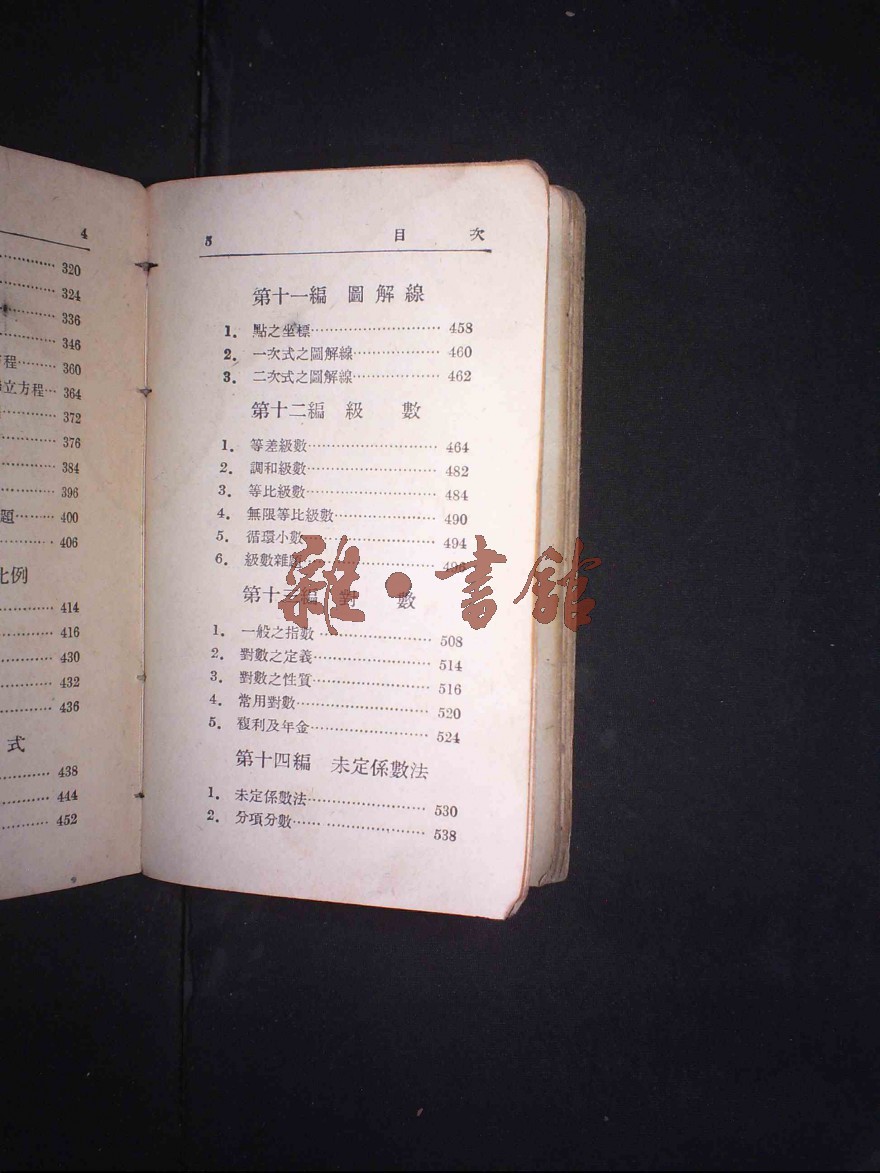 4
320
324
336
346
程 360
立方程 364
372
376
384
396
題 400
406
比例
414
416
430
432
436
式
438
444
452
5 目 次
第十一編 圖解線
1. 點之坐標 458
2. 一次式之圖解線 460
3. 二次式之圖解線 462
第十二編 級 數
1. 等差級數 464
2. 調和級數 482
3. 等比級數 484
4. 無限等比級數 490
5. 循環小數 494
6. 級數雜題 496
第十三編 對 數
1. 一般之指數 508
2. 對數之定義 514
3. 對數之性質 516
4. 常用對數 520
5. 複利及年金 524
第十四編 未定係數法
1. 未定係數法 530
2. 分項分數 538
雜·書館